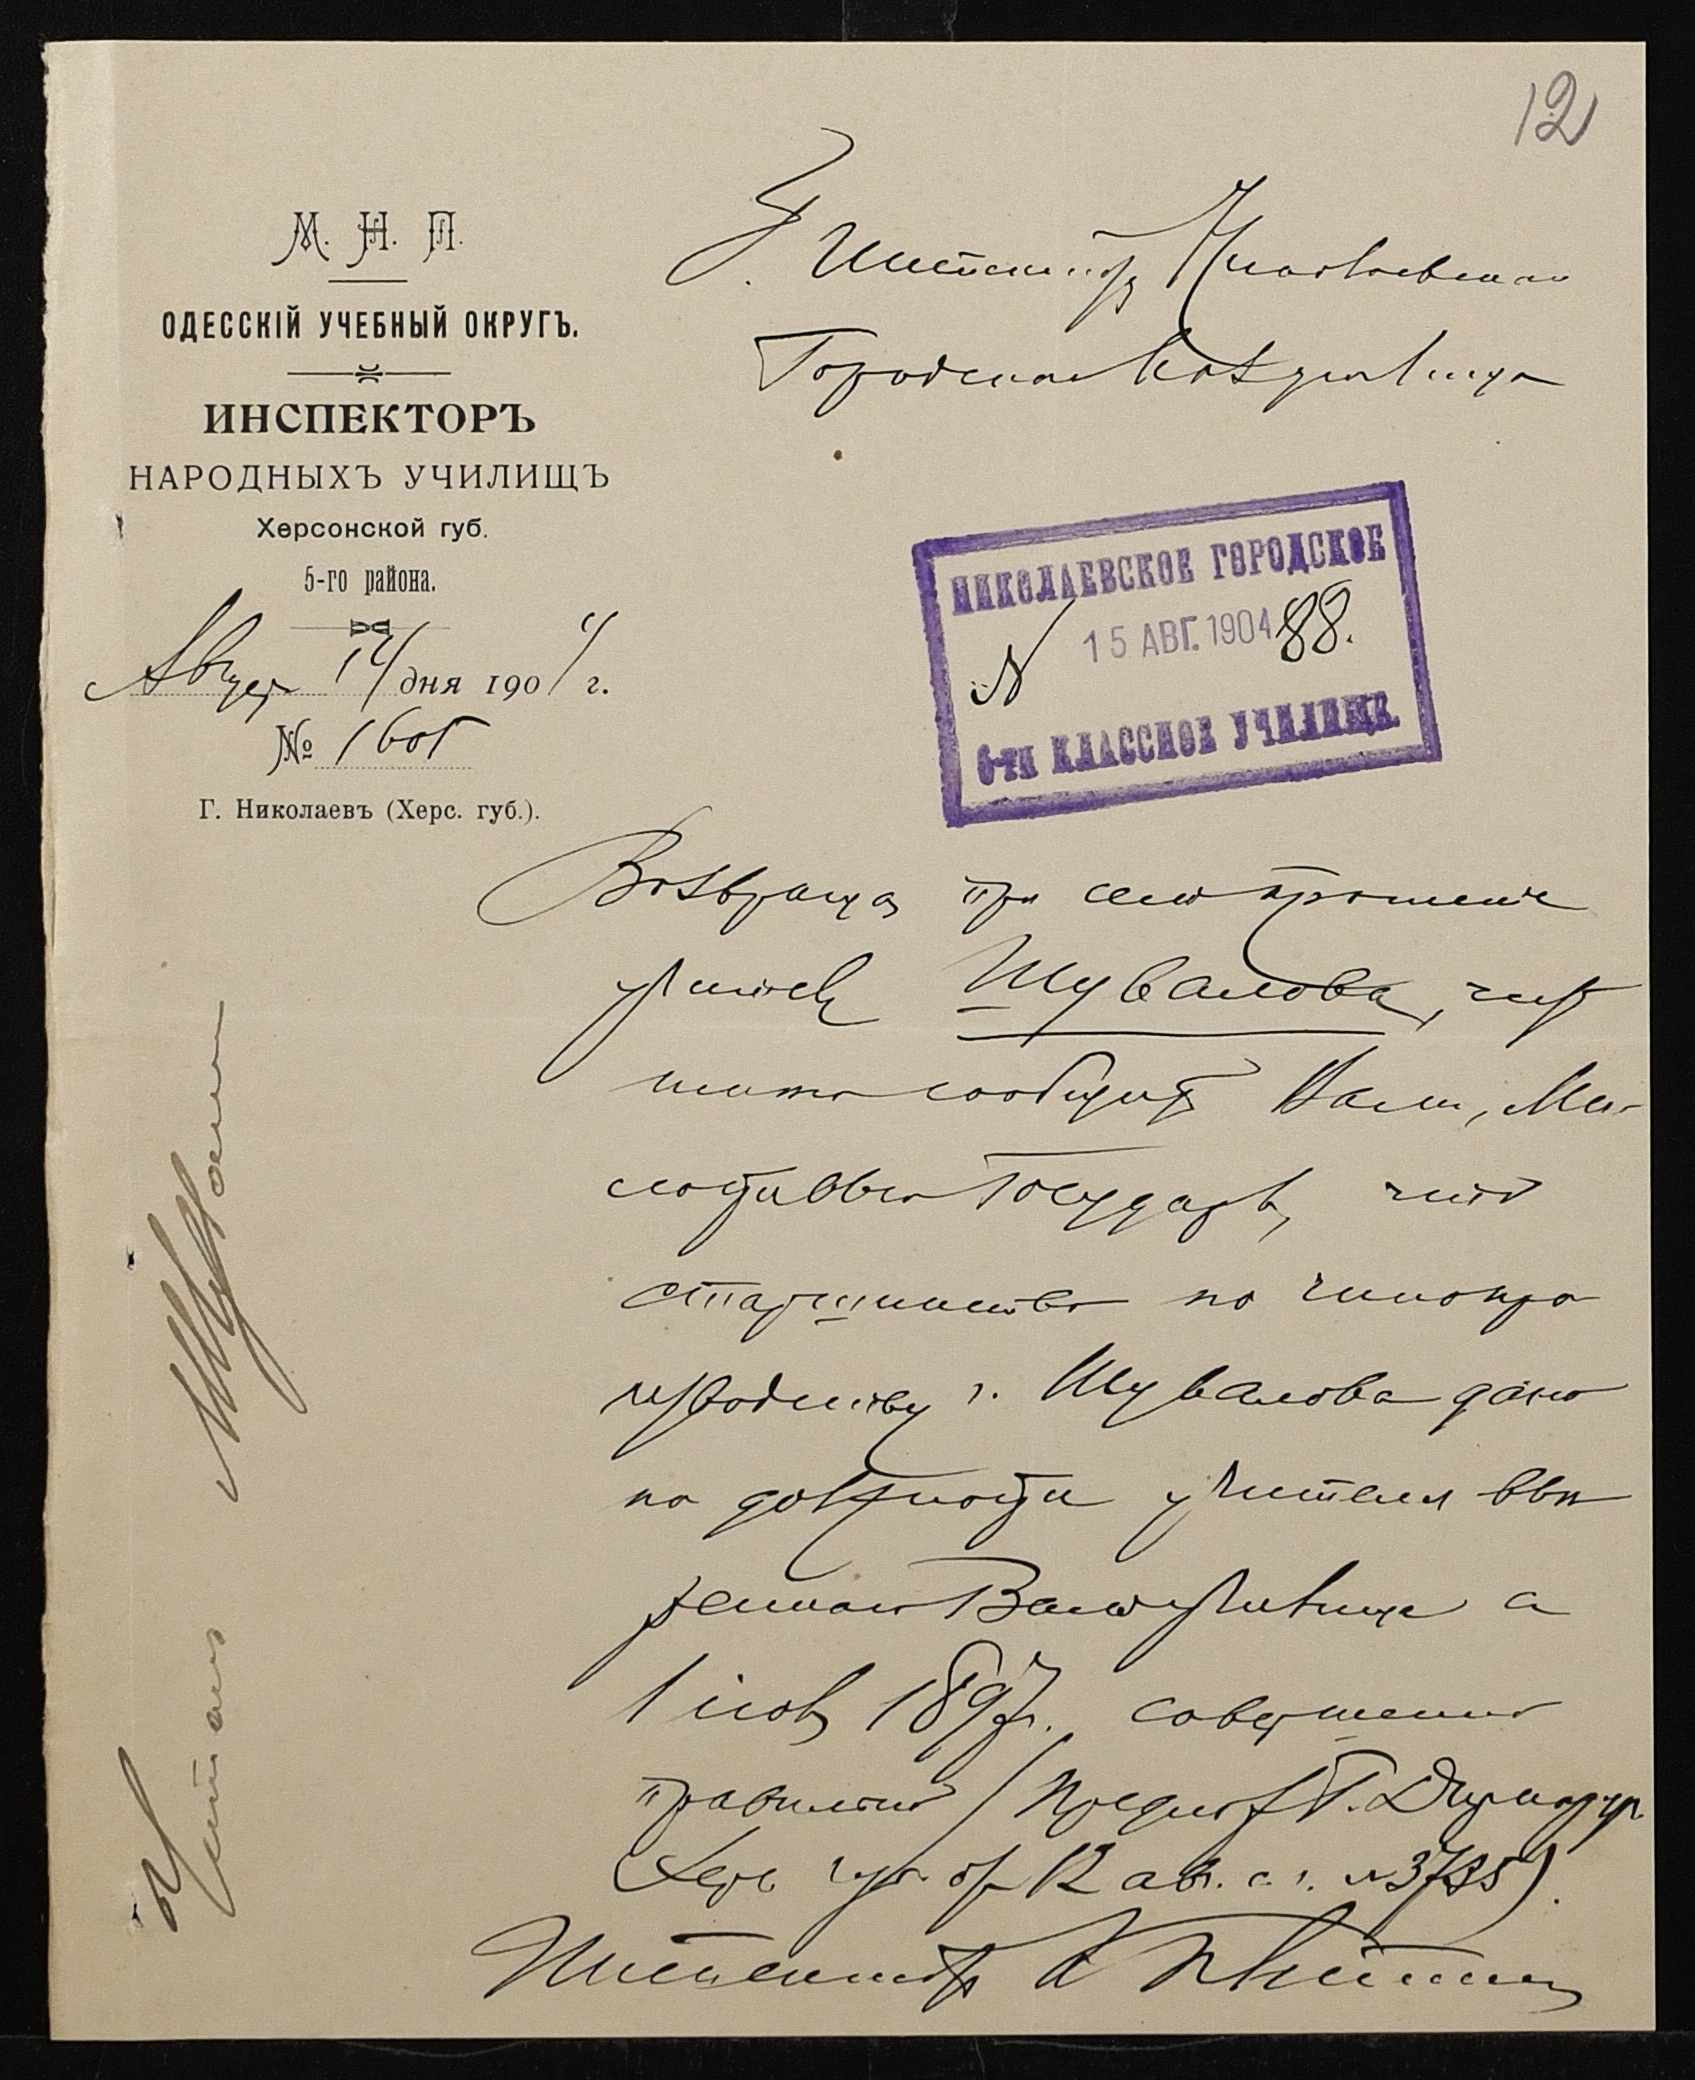 12
М. Н. П.
ОДЕССКІЙ УЧЕБНЫЙ ОКРУГЪ.
ИНСПЕКТОРЪ
НАРОДНЫХЪ УЧИЛИЩЪ
Херсонской губ.
5-го района.
Август 14 дня 1904 г.
№ 1605
Г. Николаевъ (Херс. губ.).
Г. Инспектору Николаевскаго
Городского училища
НИКОЛАЕВСКОЕ ГОРОДСКОЕ
15 АВГ. 1904
N 88.
6-ти КЛАССНОЕ УЧИЛИЩЕ.
Возвращая при семъ прошеніе
учителя Шувалова, честь
имѣю сообщить Вамъ, Ми-
лостивый Государь, что
старшинство по чинопро
изводству г. Шувалова дано
по должности учителя
училища с
1 1897 г. совершенно
правильно (предлож. Г. Директора
Херс. губ. от 12 авг. с. г. № 3785).
Инспектор
Читалъ Шувалов